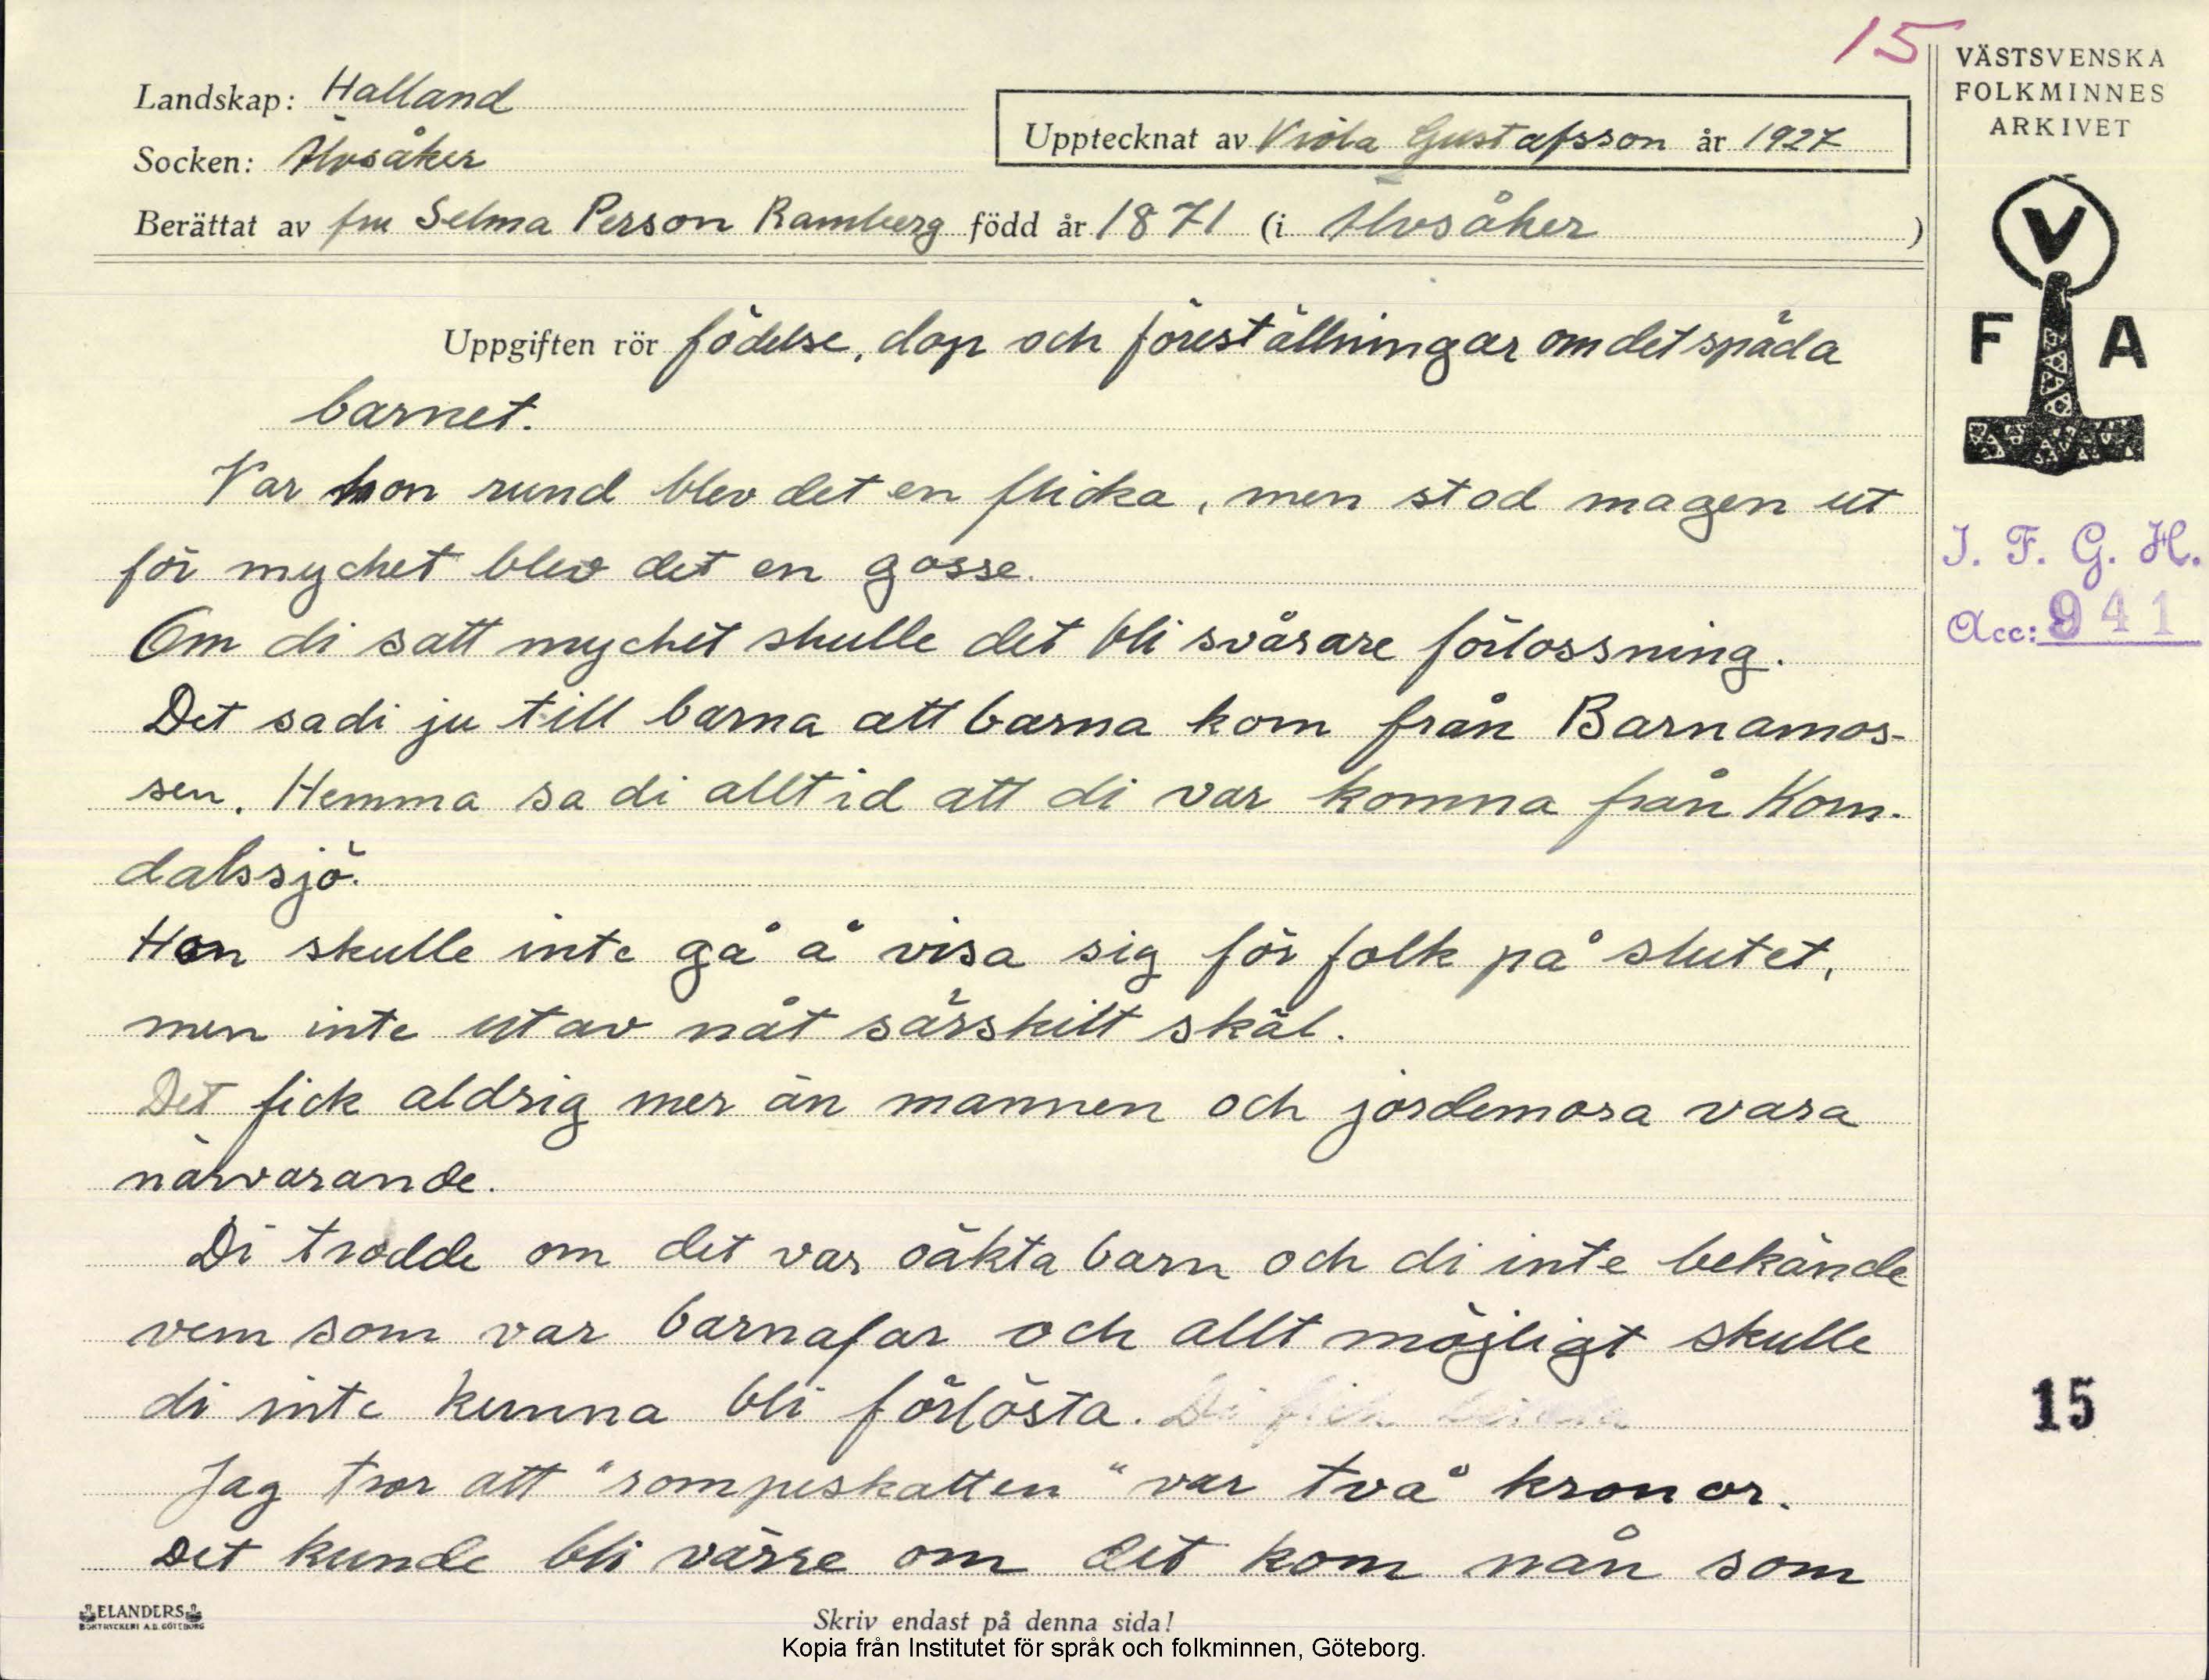 15
VÄSTSVENSKA
FOLKMINNES
ARKIVET
Landskap: Halland
Upptecknat av Viola Gustafsson år 1927
Socken: Älvsåker
Berättat av fru Selma Person Ramberg född år 1871 (i Älvsåker )
V
F A
Uppgiften rör födelse, dop och föreställningar om det späda
barnet.
Var hon rund blev det en flicka, men stod magen ut
för mycket blev det en gosse.
J. F. G. H.
Acc: 941
Om di satt mycket skulle det bli svårare förlossning.
Det sa di ju till barna att barna kom från Barnamos-
sen. Hemma sa di alltid att di var komna från Korn-
dalssjö.
Hon skulle inte gå å visa sig för folk på slutet,
men inte utav nåt särskilt skäl.
Det fick aldrig mer än mannen och jordemora vara
närvarande.
Di trodde om det var oäkta barn och di inte bekände
vem som var barnafar och allt möjligt skulle
di inte kunna bli förlösta. Di fick
15
Jag tror att "rompeskatten" var två kronor.
Det kunde bli värre om det kom nån som
ELANDERS
BOKTRYCKERI A.B. GÖTEBORG
Skriv endast på denna sida!
Kopia från Institutet för språk och folkminnen, Göteborg.